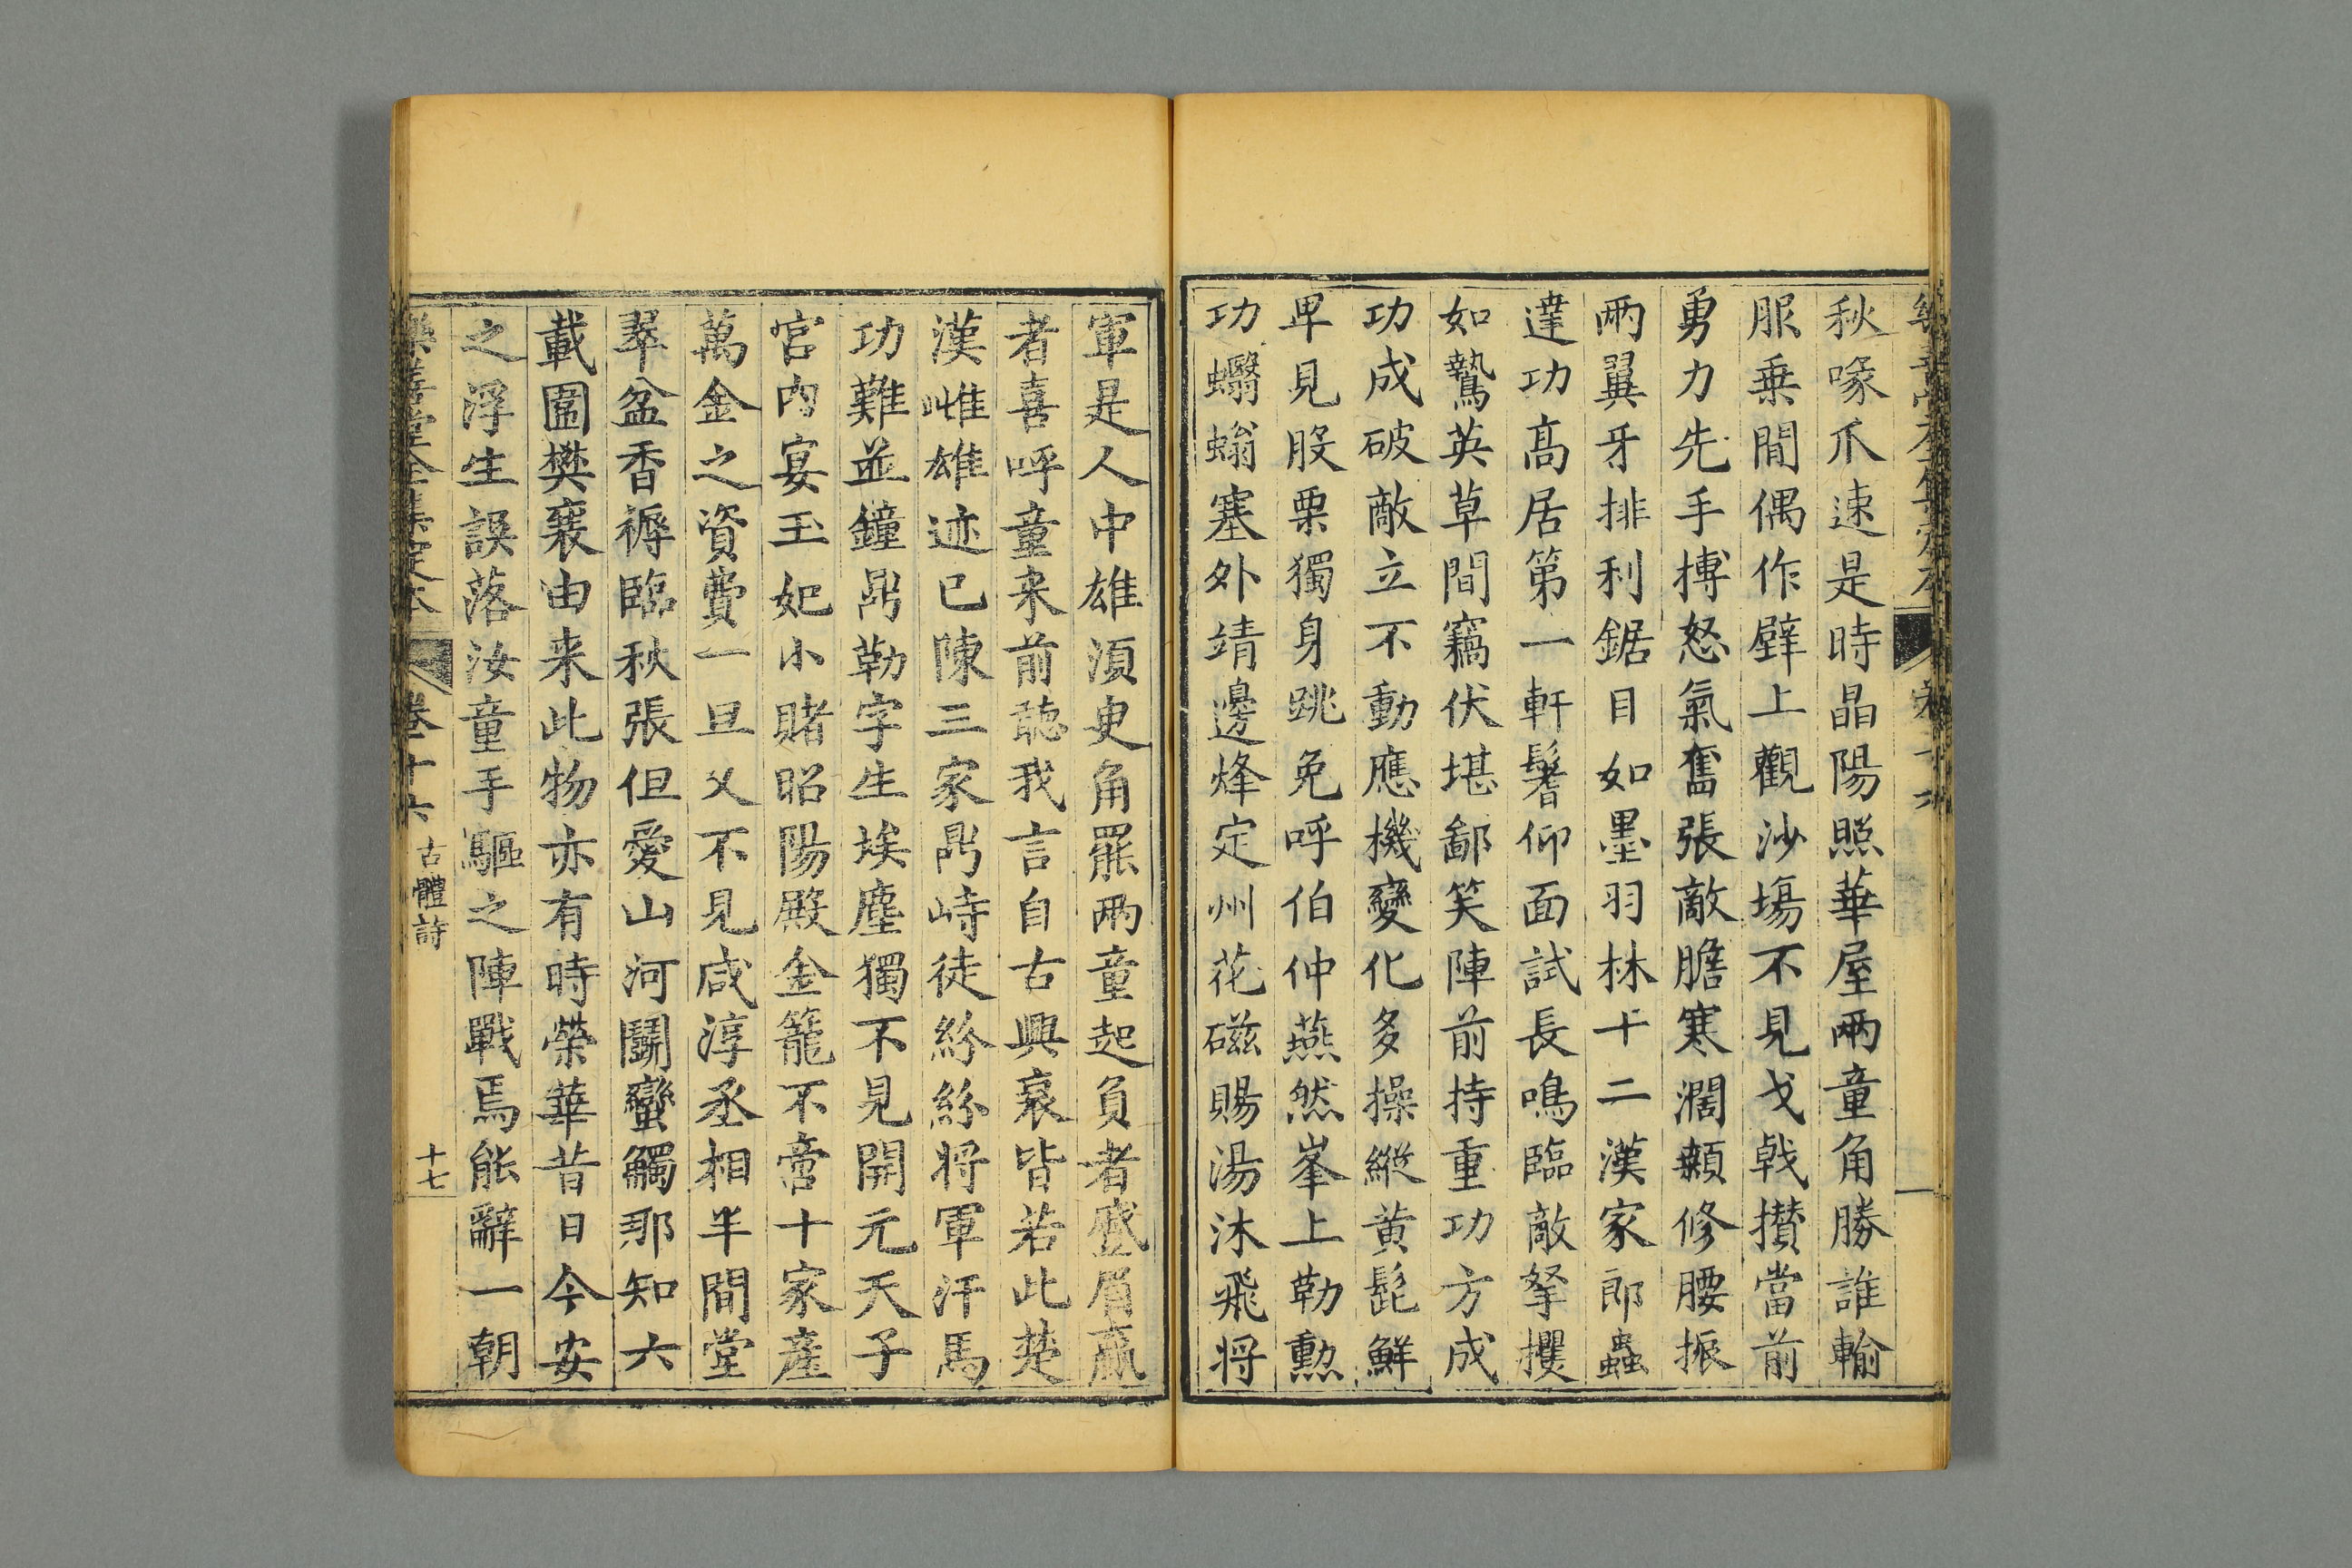 秋喙爪速是時晶陽照華屋兩童角勝誰輸
服乗間偶作壁上觀沙塲不見戈戟攅當前
勇力先手搏怒氣奮張敵膽寒濶頰修腰振
兩翼牙排利鋸目如墨羽林十二漢家郎蟲
達功高居第一軒鬐仰面試長鳴臨敵拏攫
如鷙英草間竊伏堪鄙笑陣前持重功方成
功成破敵立不動應機變化多操縱黄髭鮮
卑見股栗獨身跳免呼伯仲燕然峯上勒勲
功蠮螉塞外靖邊烽定州花磁賜湯沐飛将
軍是人中雄湏史角罷兩童起負者蹙眉贏
者喜呼童来前聴我言自古興衰皆若此楚
漢雌雄迹已陳三家鼎峙徒紛紛将軍汗馬
功難並鐘鼎勒字生埃塵獨不見開元天子
宫内宴玉妃小賭昭陽殿金籠不啻十家産
萬金之資費一旦又不見咸淳丞相半間堂
翠盆香褥臨秋張但愛山河鬭蠻觸那知六
載圍樊襄由来此物亦有時榮華昔日今安
之浮生誤落汝童手驅之陣戰焉能辭一朝
樂善堂全集定本 卷十六 古體詩 十七